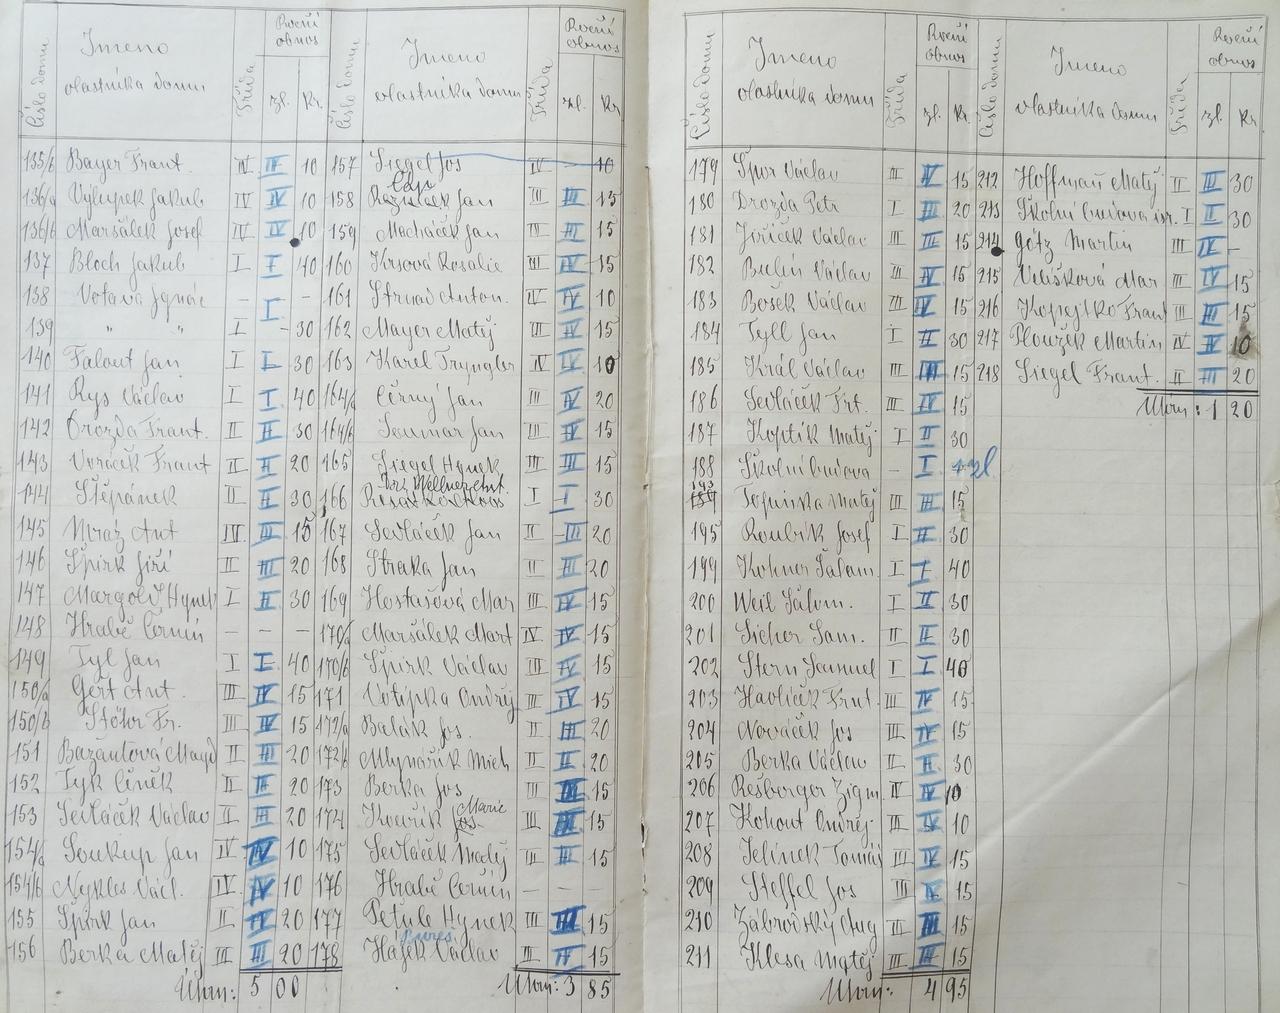 Číslo domu Jmeno vlastníka domu Třída Roční obnos zl. Kr.
135/b Bayer Frant. IV IV 10
136/a Vylupek Jakub IV IV 10
136/b Maršálek Josef IV IV 10
137 Bloch Jakub I I 40
138 Votava Ignác – I –
139 " " I - 30
140 Falout Jan I I 30
141 Rys Václav I I 40
142 Drozda Frant. II II 30
143 Voráček Frant II II 20
144 Štěpánek II II 30
145 Mráz Ant IV. III 15
146 Špirk Jiří II III 20
147 Margold Hynek I II 30
148 Hrabě Černín – – –
149 Tyl Jan I I 40
150/a Gert Ant. III IV 15
150/b Stöhr Fr. III IV 15
151 Bažantová Magd II III 20
152 Tyk Čeněk II II 20
153 Sedláček Václav II III 20
154/a Soukup Jan IV IV 10
154/b Nykles Václ. IV IV 10
155 Špirk Jan II IV 20
156 Berka Matěj III III 20
Úhrn: 5 00
Číslo domu Jmeno vlastníka domu Třída Roční obnos zl. Kr.
157 Siegel Jos IV 10
158 Jan III III 15
159 Macháček Jan III III 15
160 Krsová Rosalie III IV 15
161 Strnad Anton. IV IV 10
162 Mayer Matěj III IV 15
163 Karel Tryngler IV IV 10
164/a Černý Jan III IV 20
164/b Soumar Jan III IV 15
165 Siegel Hynek III III 15
166 I I 30
167 Sedláček Jan II III 20
168 Straka Jan II III 20
169 Hostašová Mar III IV 15
170/a Maršálek Mart IV IV 15
170/b Špirk Václav III IV 15
171 Votípka Ondřej III IV 15
172/a Balák Jos. II III 20
172/b Mlynařík Mich II II 20
173 Berka Jos III III 15
174 Kovařík Jos. Marie III III 15
175 Sedláček Matěj III III 15
176 Hrabě Černín – – –
177 Petule Hynek III III 15
178 Hájek Václav III IV 15
Úhrn: 3 85
Číslo domu Jmeno vlastníka domu Třída Roční obnos zl. Kr.
179 Špor Václav III IV 15
180 Drozda Petr I III 20
181 Jiříček Václav III III 15
182 Bulín Václav III IV 15
183 Bošek Václav III IV 15
184 Tyll Jan I II 30
185 Král Václav III III 15
186 Sedláček Frt. III IV 15
187 Koptík Matěj I II 30
188 Školní budova – I zl.
193 Topinka Matěj III III 15
195 Roubík Josef I II 30
199 Kohner Šalam. I I 40
200 Weil Šalom. I II 30
201 Sicher Sam. II II 30
202 Stern Samuel I I 40
203 Havlíček Frnt. III IV 15
204 Nováček Jos III IV 15
205 Berka Václav II II 30
206 Rešberger Zigm. IV IV 10
207 Kohout Ondřej III IV 10
208 Jelínek Tomáš III IV 15
209 Steffel Jos III IV 15
210 Zábrodský Aug III III 15
211 Klesa Matěj III III 15
Úhrn: 4 95
Číslo domu Jmeno vlastníka domu Třída Roční obnos zl. Kr
212 Hoffman Matěj II III 30
213 Školní budova isr. I II 30
214 Götz Martin III IV –
215 Vilišková Mar III IV 15
216 Kopejtko Frant III III 15
217 Ploužek Martin IV IV 10
218 Siegel Frant. II III 20
Úhrn: 1 20